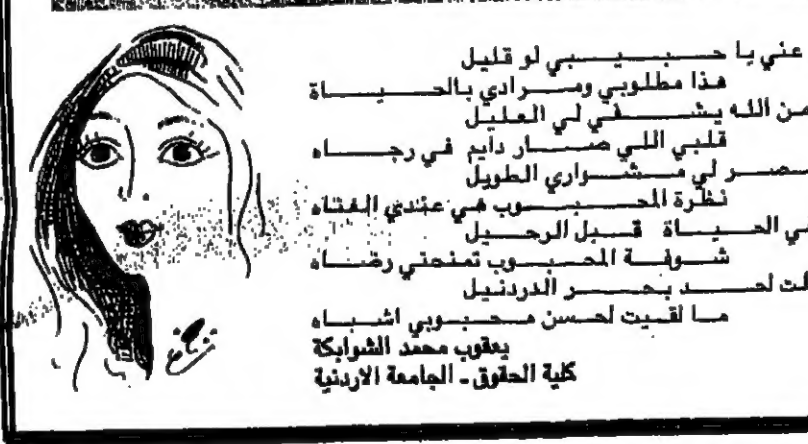 عني يا حبيبي لو قليل
هذا مطلوبي ومرادي بالحياة
من الله يشفي لي العليل
قلبي اللي صار دايم في رجاه
لي مشواري الطويل
نظرة المحبوب هي عندي الغناه
الحياة قبل الرحيل
شوفة المحبوب تمنحني رضاه
لحد بحر الدردنيل
ما لقيت لحسن محبوبي اشباه
يعقوب محمد الشوابكة
كلية الحقوق - الجامعة الاردنية